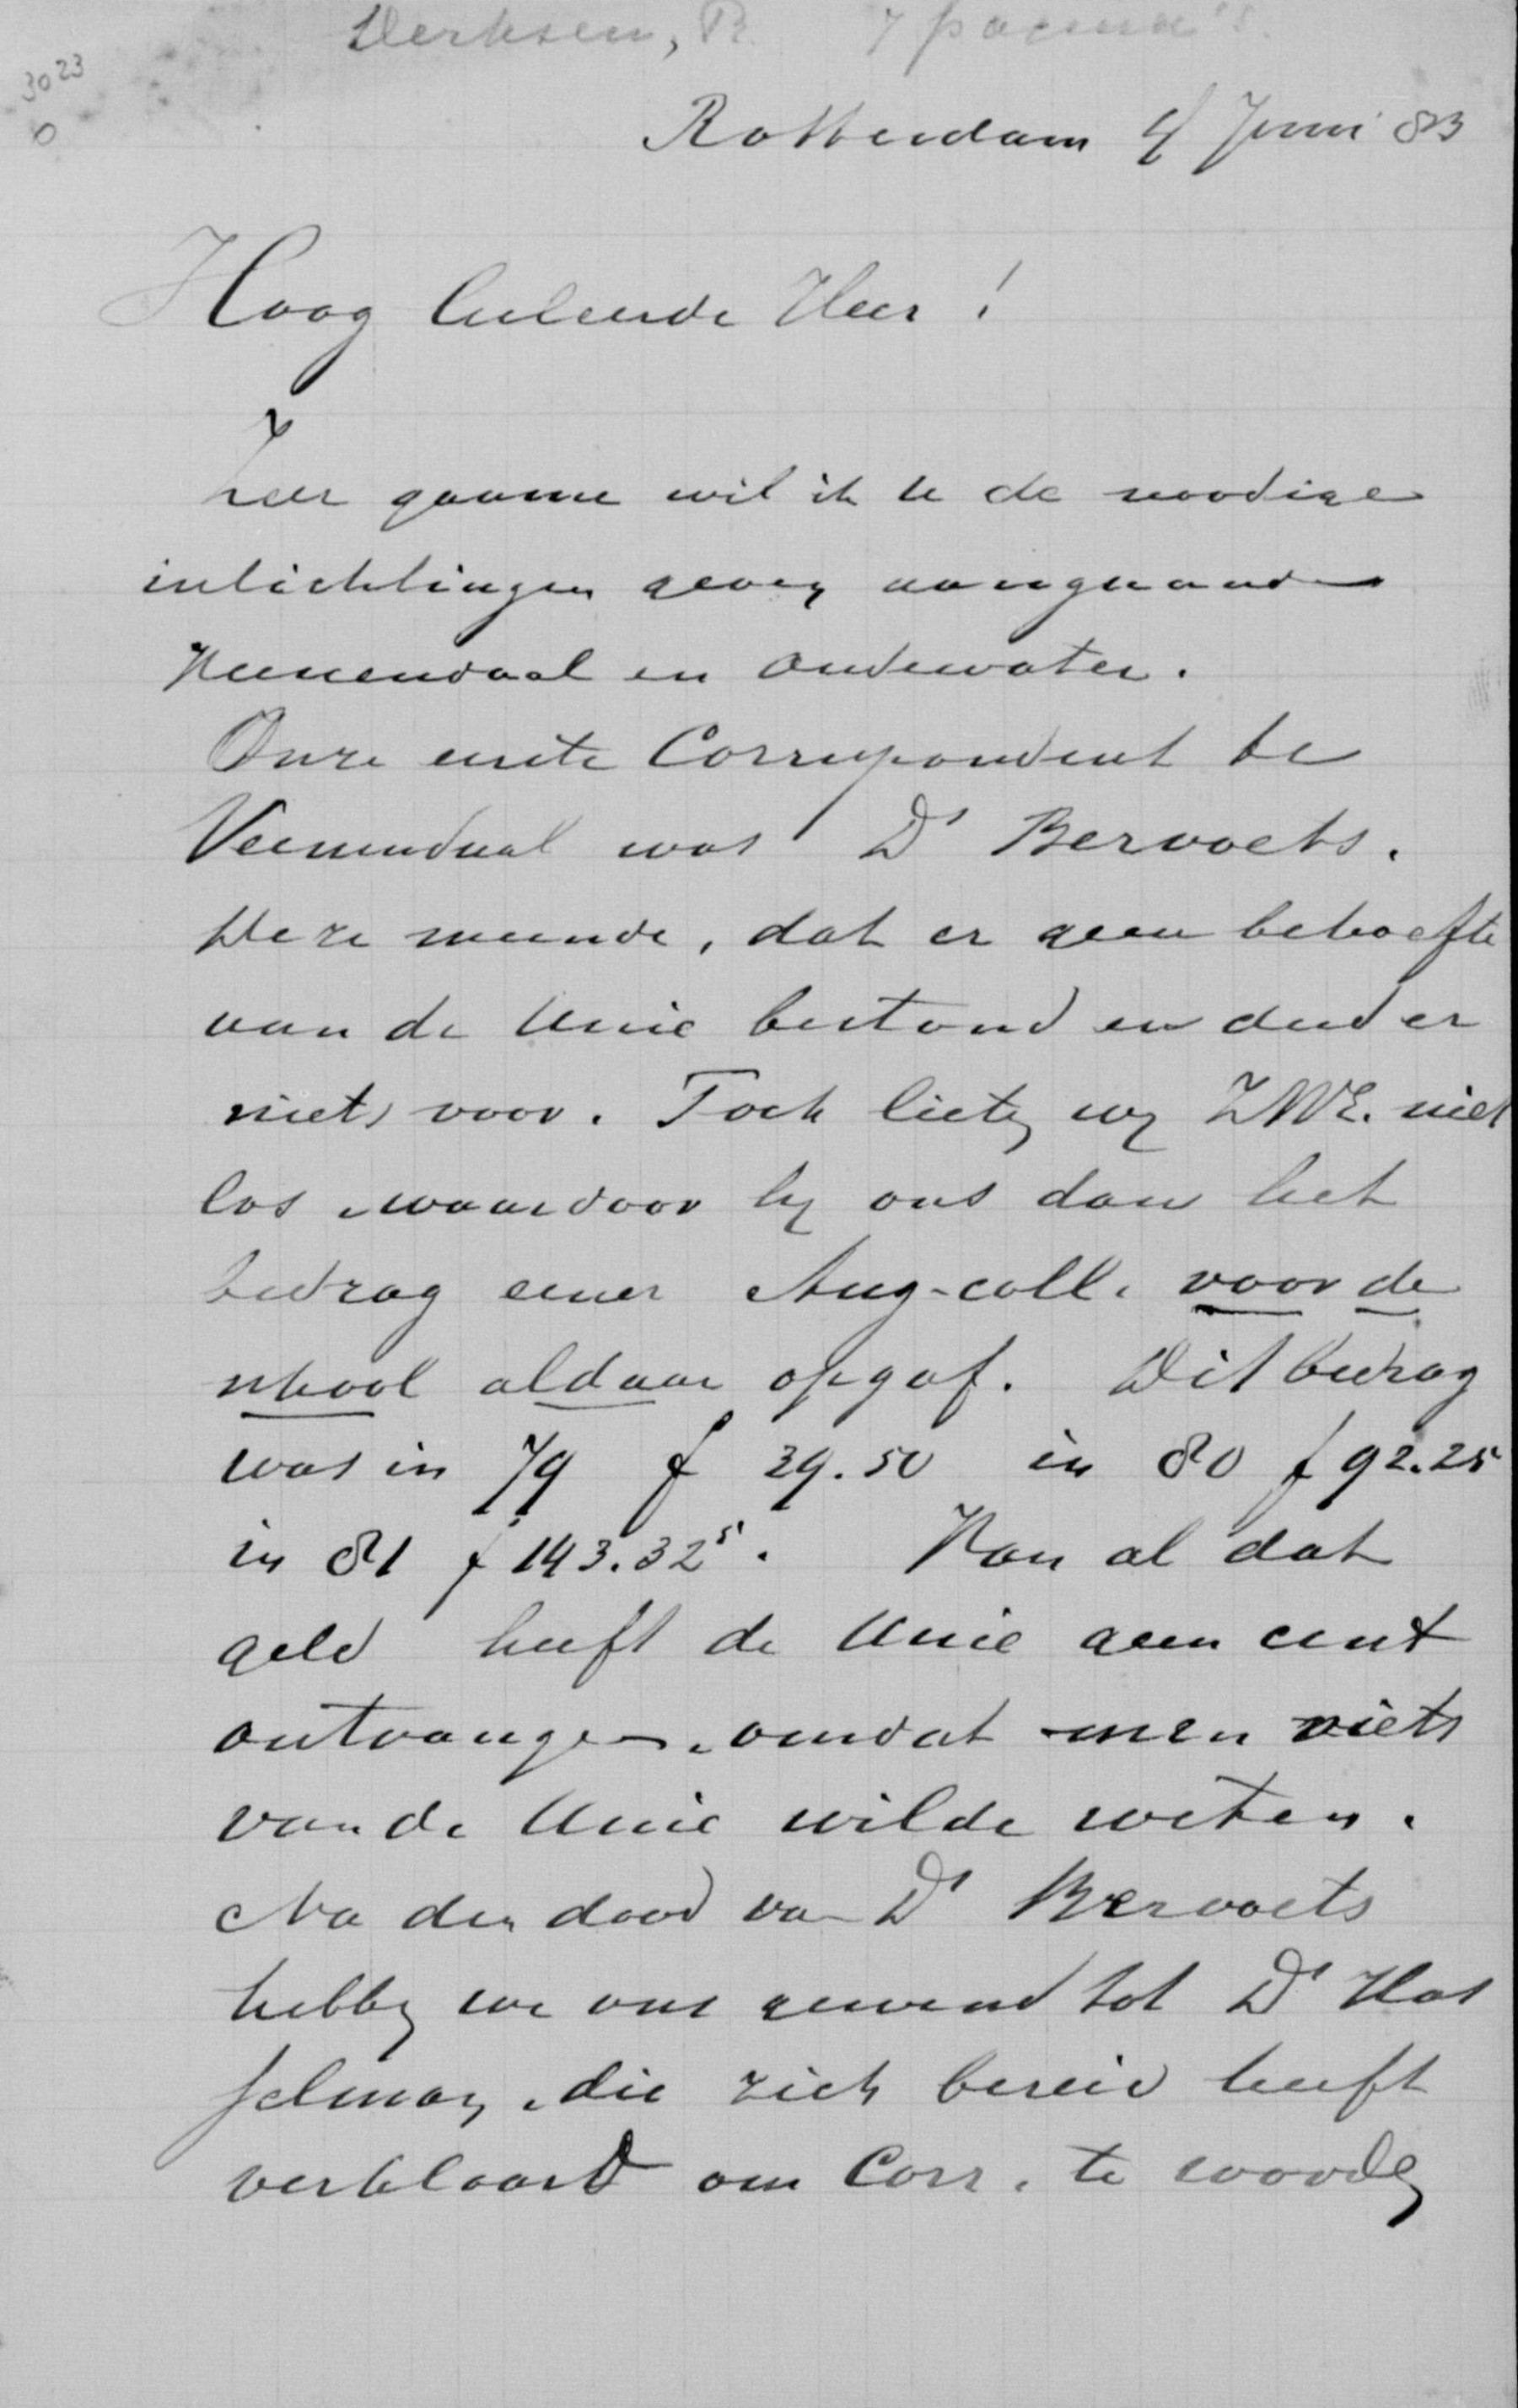 Derksen, R. 7 pagina's.
3023
0
Rotterdam 4 Juni 83
Hoog Geleerde Heer!
Zeer gaarne wil ik U de noodige
inlichtingen geven aangaande
Veenendaal en Oudewater.
Onze eerste Correspondent te
Veenendaal was Ds Bervoets.
Deze meende, dat er geen behoefte
aan de Unie bestond en deed er
niets voor. Toch lieten wij ZWE. niet
los, waardoor hij ons dan het
bedrag eener Aug-coll. voor de
school aldaar opgaf. Dit bedrag
was in 79 f 39.50 in 80 f 92.25
in 81 f 143.32⁵. Van al dat
geld heeft de Unie geen cent
ontvangen, omdat men niets
van de Unie wilde weten.
Na den dood van Ds Bervoets
hebben we ons gewend tot Ds Has
selman, die zich bereid heeft
verklaard om Corr. te worden